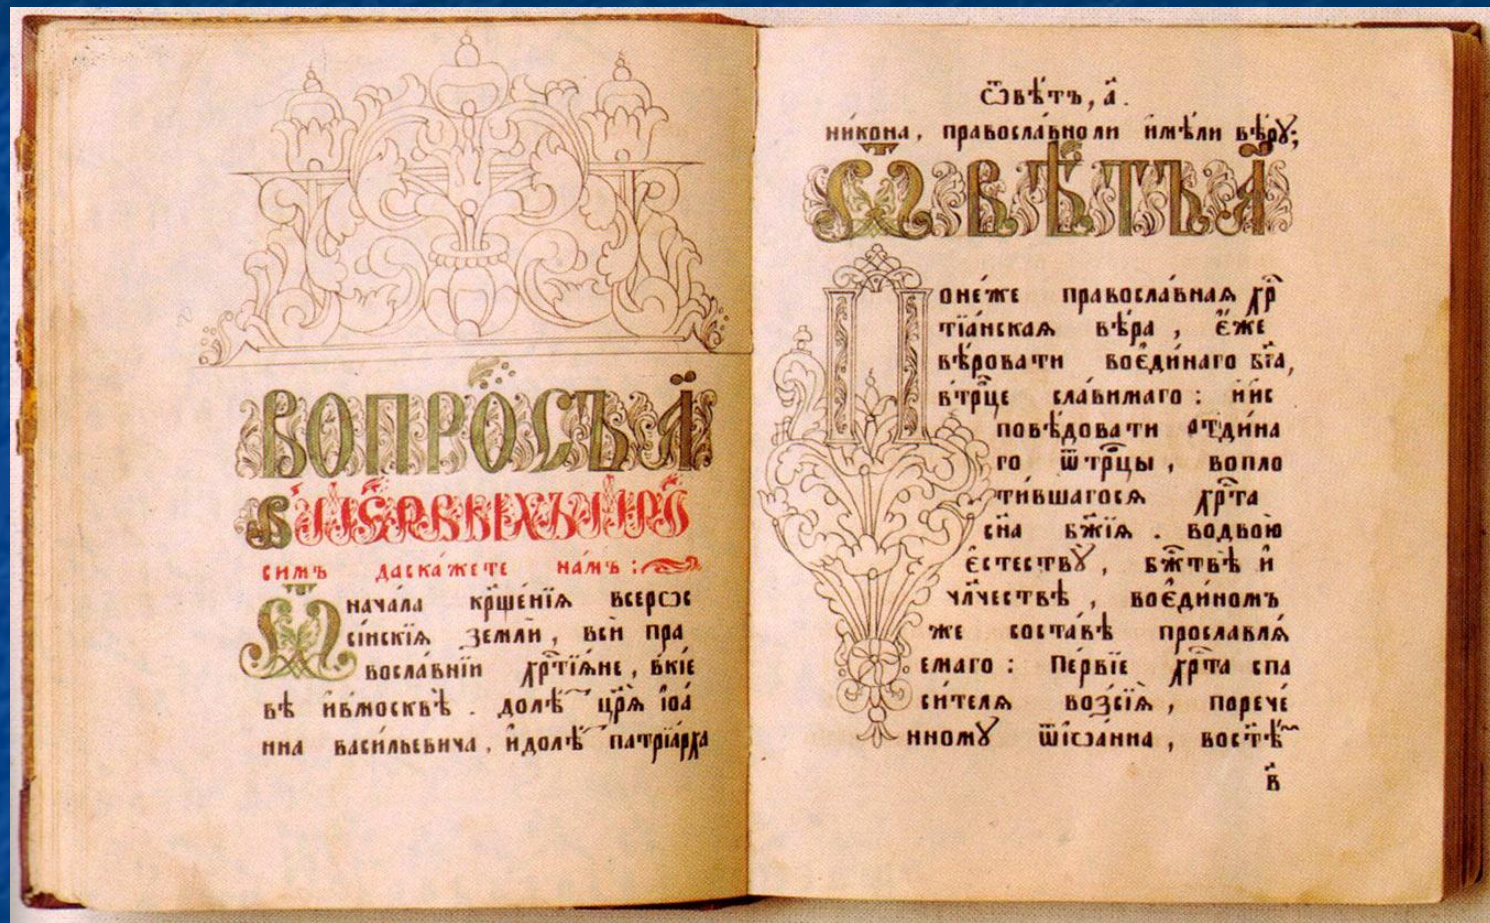 ВОПРО́СЪ А҃
В̾ ПЕ́РВЫХЪ ПРО́
СИМЪ ДАСКА́ЖЕТЕ НА́МЪ :
Ѿ нача́ла кр҃ще́нїѧ всерѡс
сі́искїѧ земли̑ , вси̑ пра
восла́внїи хр҃тїѧ́не , вкїе
вѣ и҆вмосквѣ̀ . долѣ̀ цр҃ѧ̀ і҆оа́
нна васи́льевича , и҆долѣ̀ патрїа́рха
Ѿвѣ́тъ , а҃ .
ни́кона , правосла́вноли и҆мѣ́ли вѣ́рꙋ ;
Ѿ ВѢ́ТЪ А҃
Поне́же правосла́внаѧ хр҃
тїа́нскаѧ вѣ́ра , є҆́же
вѣ́ровати воєди́наго бг҃а ,
втрⷪ҇це сла́вимаго : и҆ис
повѣ́довати ѿєди́на
го ѿтрⷪ҇цы , вопло
ти́вшагосѧ хрⷭ҇та
сн҃а бж҃їѧ . водвою̀
є҆стествꙋ̀ , бж҃твѣ̀ и҆
чл҃чествѣ , воєди́номъ
же соста́вѣ прославлѧ́
емаго : Пе́рвїе хрⷭ҇та спа
си́телѧ возсїѧ̀ , порече́
нномꙋ ѿїѡа́нна , востѣ̀
в҃